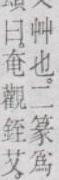 艸也。二篆爲
頌曰。奄觀銍艾。